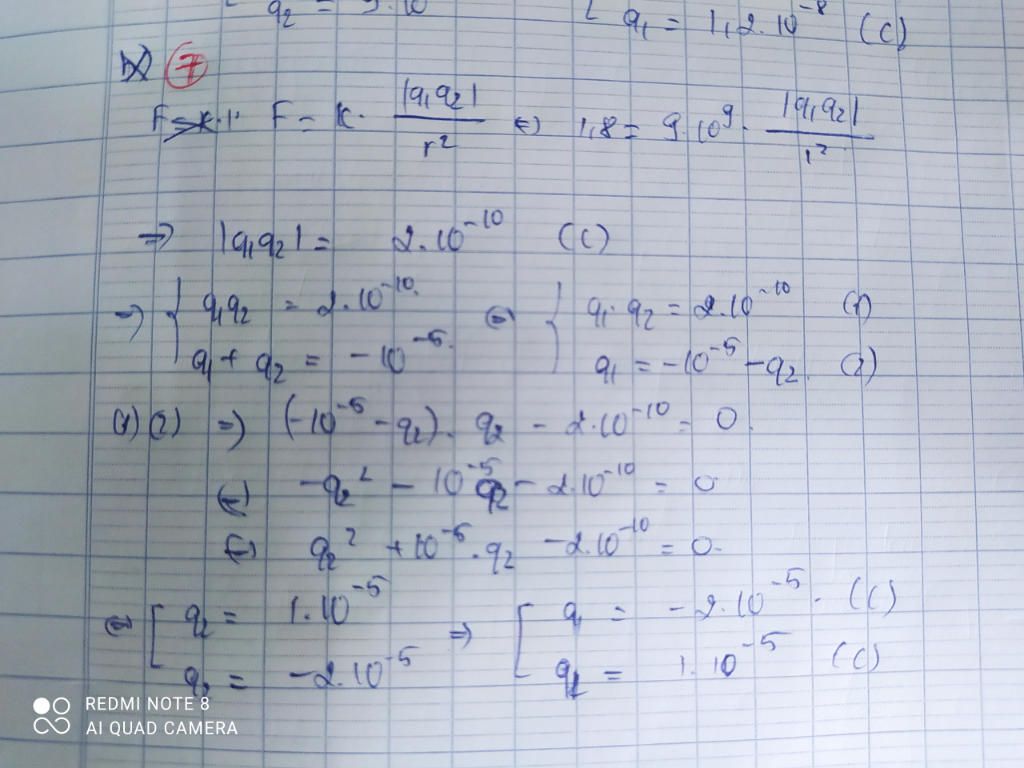 q₂ = 9.10 [ q₁ = 1,2.10⁻⁸ (C)
7
F = k. F = k. |q₁q₂| / r² ⇔ 1,8 = 9.10⁹. |q₁q₂| / 1²
⇒ |q₁q₂| = 2.10⁻¹⁰ (C)
⇒ { q₁q₂ = 2.10⁻¹⁰ ⇔ { q₁.q₂ = 2.10⁻¹⁰ (1)
q₁ + q₂ = -10⁻⁵ q₁ = -10⁻⁵ - q₂ (2)
(1)(2) ⇒ (-10⁻⁵ - q₂). q₂ - 2.10⁻¹⁰ = 0
⇔ -q₂² - 10⁻⁵q₂ - 2.10⁻¹⁰ = 0
⇔ q₂² + 10⁻⁵.q₂ - 2.10⁻¹⁰ = 0
⇔ [ q₂ = 1.10⁻⁵ ⇒ [ q₁ = -2.10⁻⁵ (C)
q₂ = -2.10⁻⁵ q₁ = 1.10⁻⁵ (C)
REDMI NOTE 8
AI QUAD CAMERA